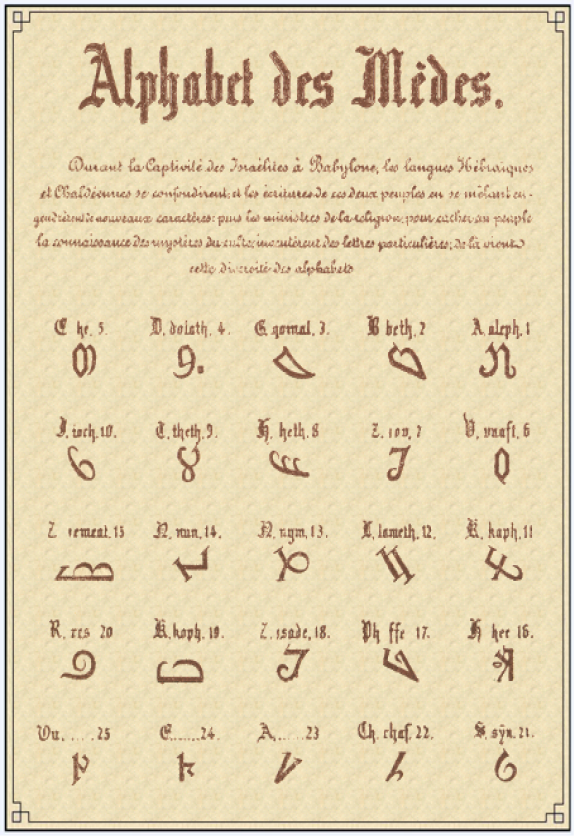 Alphabet des Mèdes.
Durant la Captivité des Israélites à Babylone, les langues Hébraïques
et Chaldéennes se confondirent, et les écritures de ces deux peuples en se mêlant en-
gendrèrent de nouveaux caractères: puis les ministres de la religion, pour cacher au peuple
la connaissance des mystères du culte, inventèrent des lettres particulières; de là vient
cette diversité des alphabets
E he. 5. D. dolath. 4. G. gomal. 3. B beth. 2 A. aleph. 1
J. ioch. 10. T. theth. 9. H. heth. 8 Z. 7 V. 6
15 N. nun. 14. 13. L. lameth. 12. K. kaph. 11
R. res 20 K. koph. 19. Z. 18. Ph ffe 17. H hee 16.
Ou. ..... 25 E. ..... 24. A. ..... 23 Ch. chaf. 22. S. syn. 21.